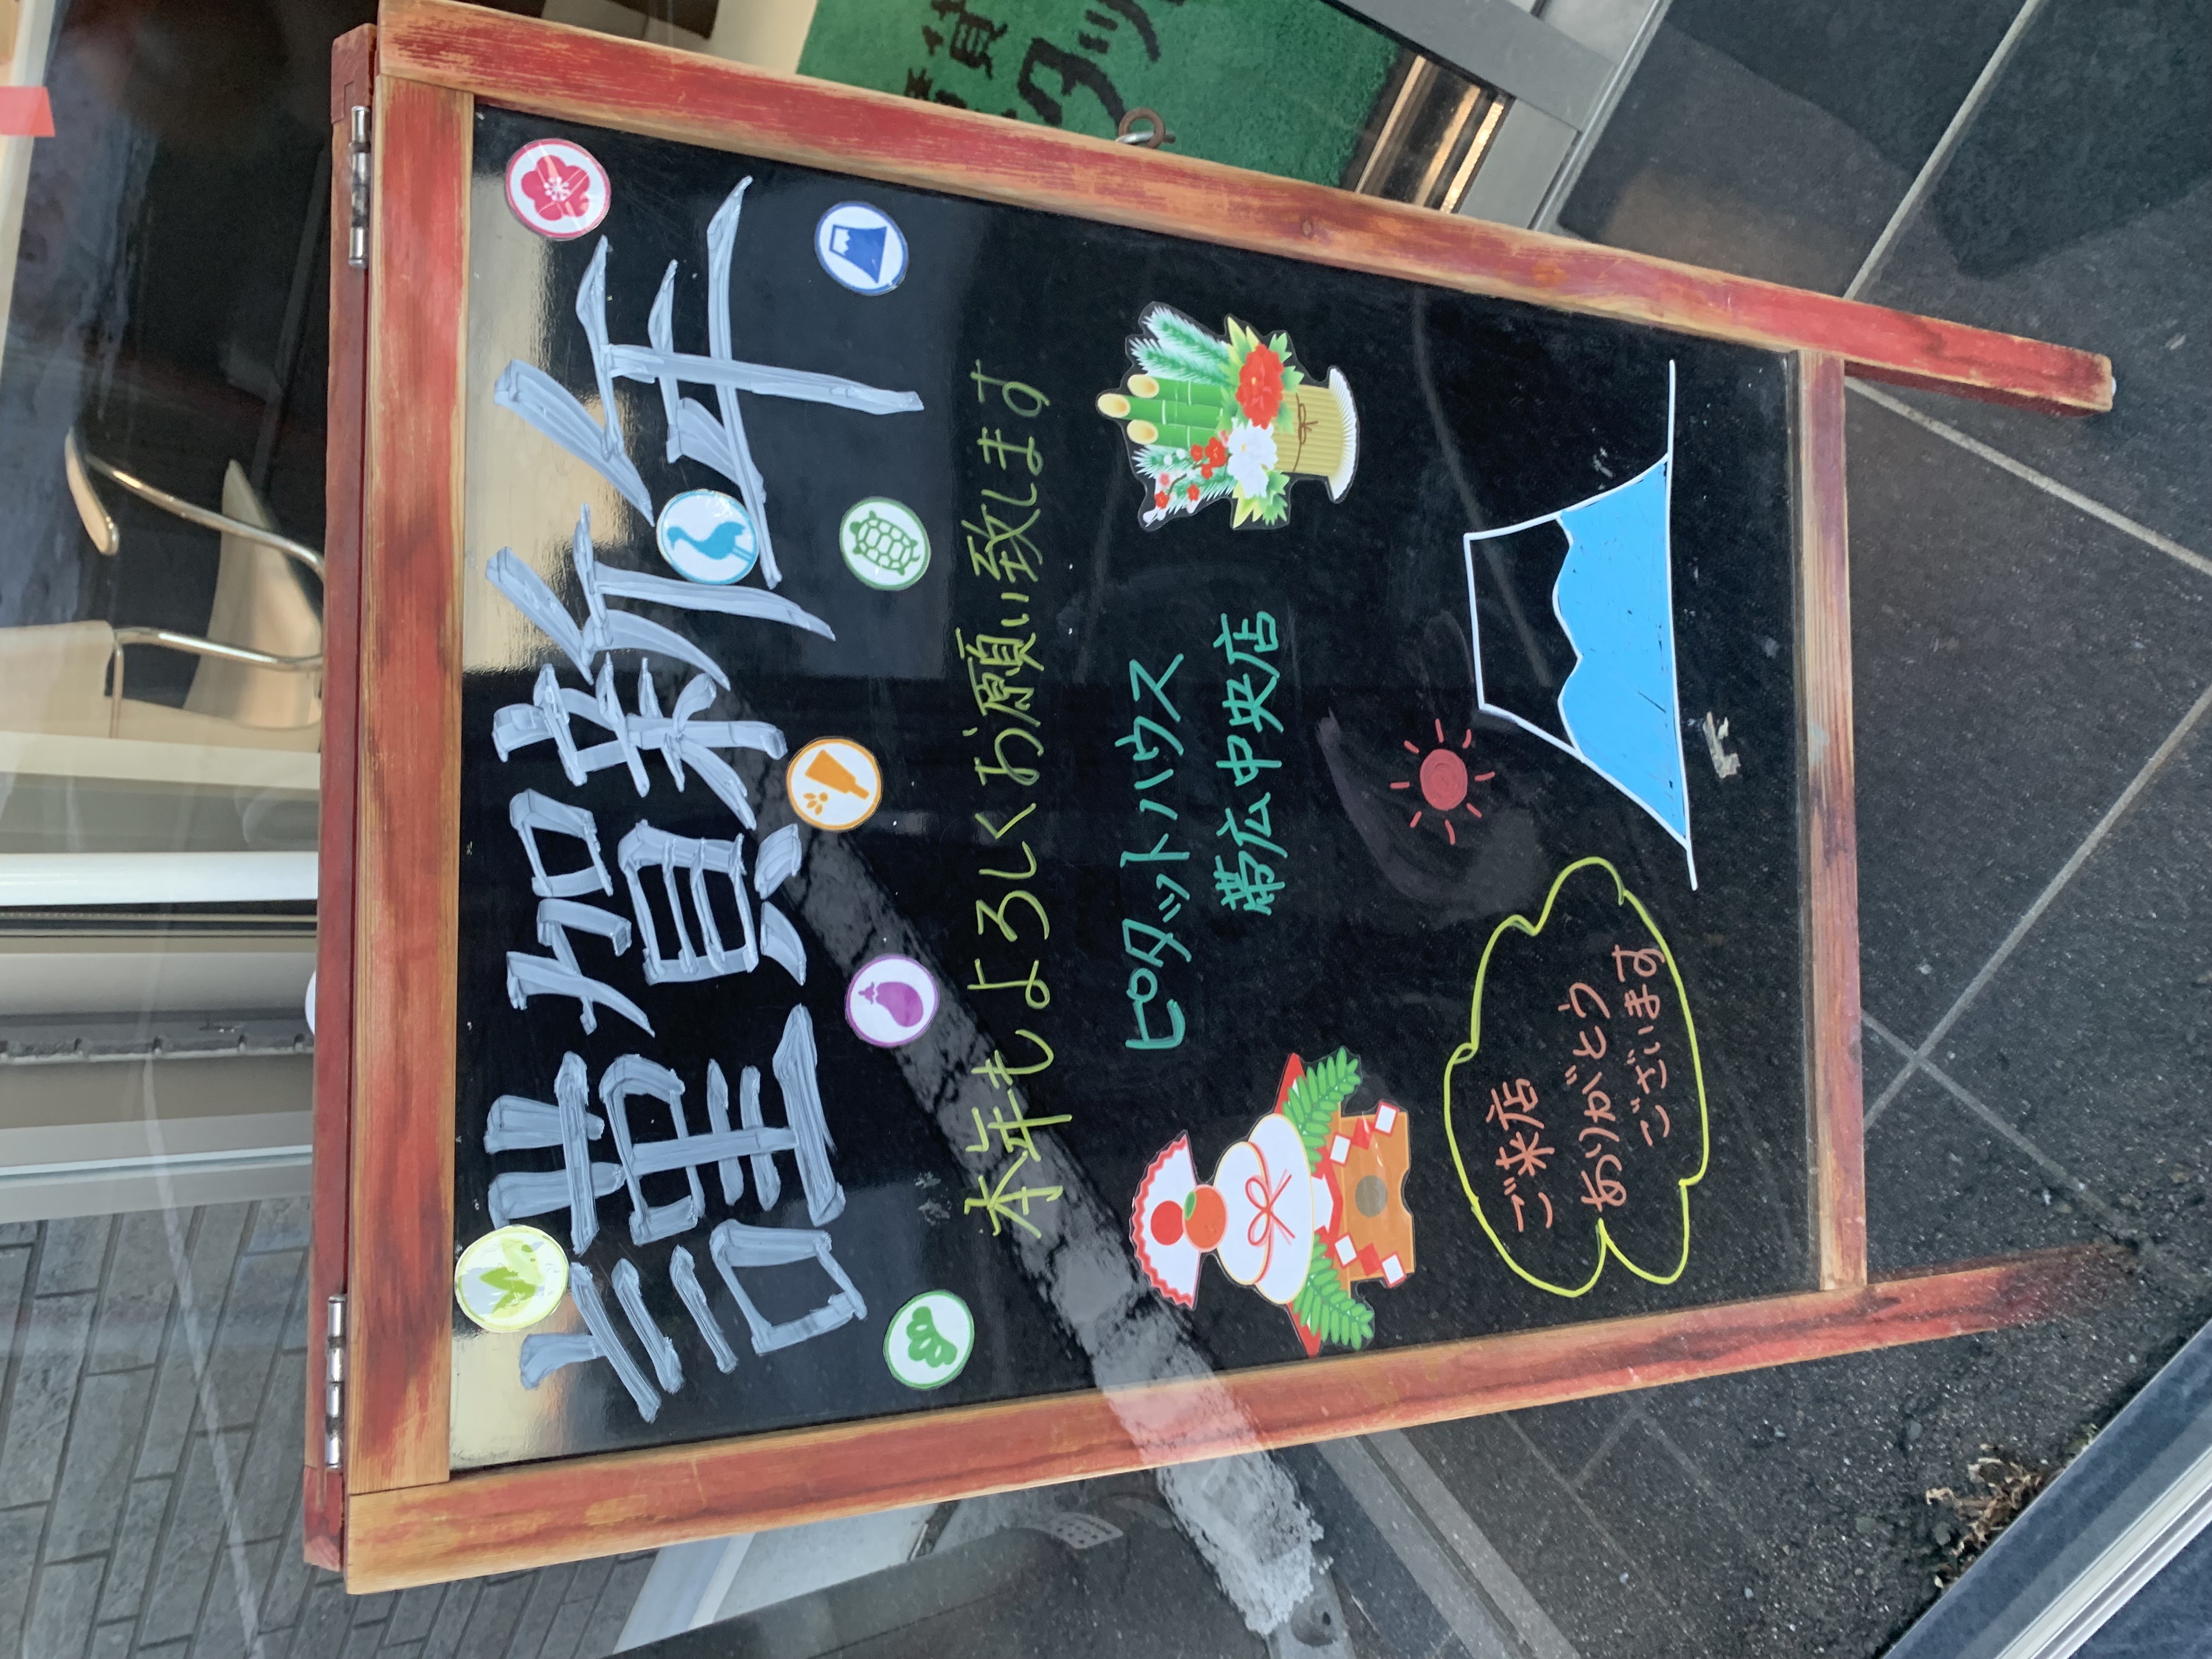 謹賀新年
本年もよろしくお願い致します
ピタットハウス
帯広中央店
ご来店
ありがとう
ございます